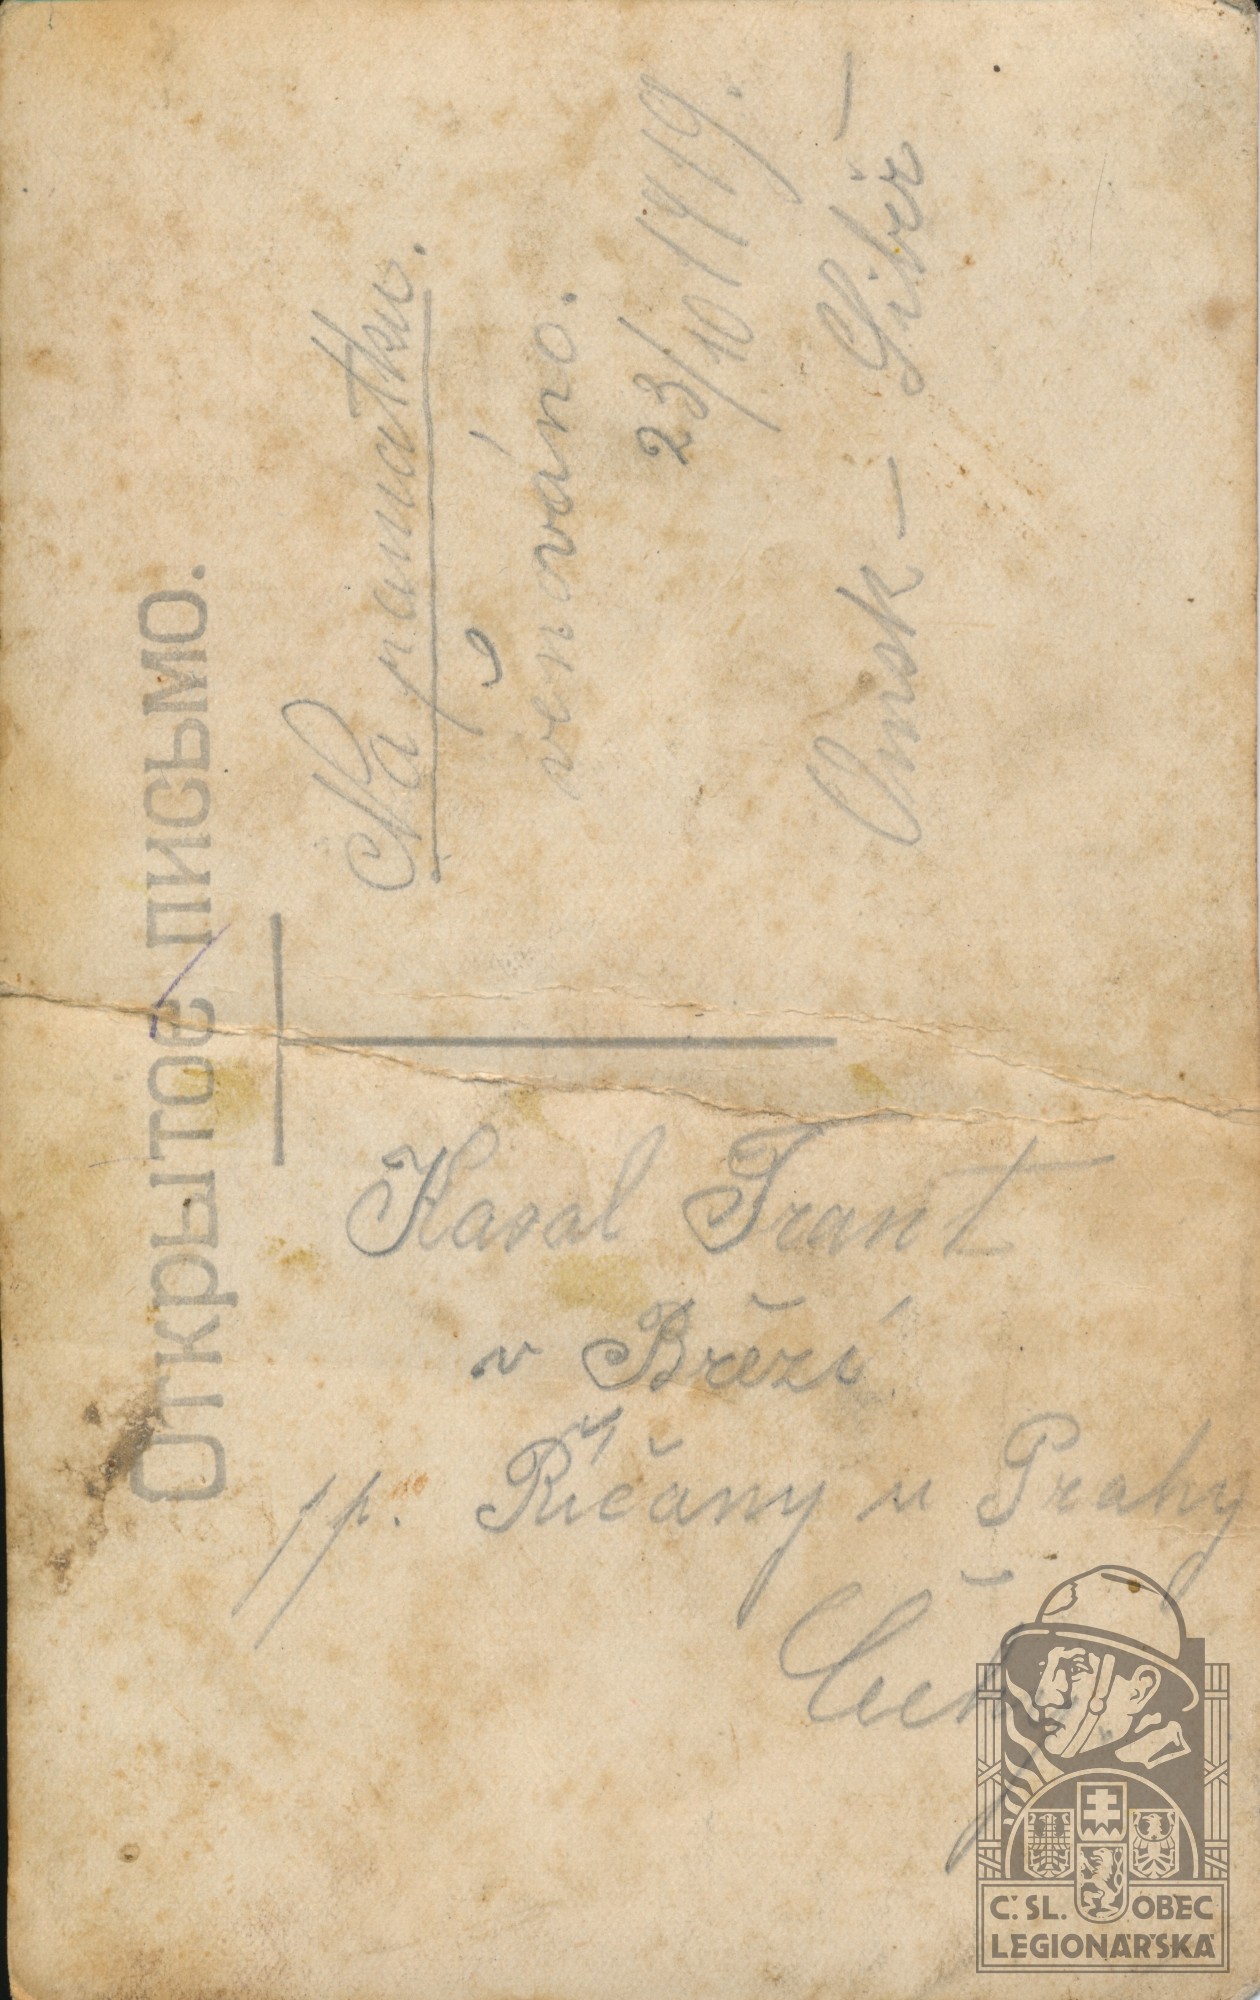 Открытое письмо.
Na památku.
věnováno.
23/10 1919.
Omsk – Sibiř –
Kasal Frant
v Březí
pp. Říčany u Prahy
Čechy
Č. SL. OBEC
LEGIONÁŘSKÁ